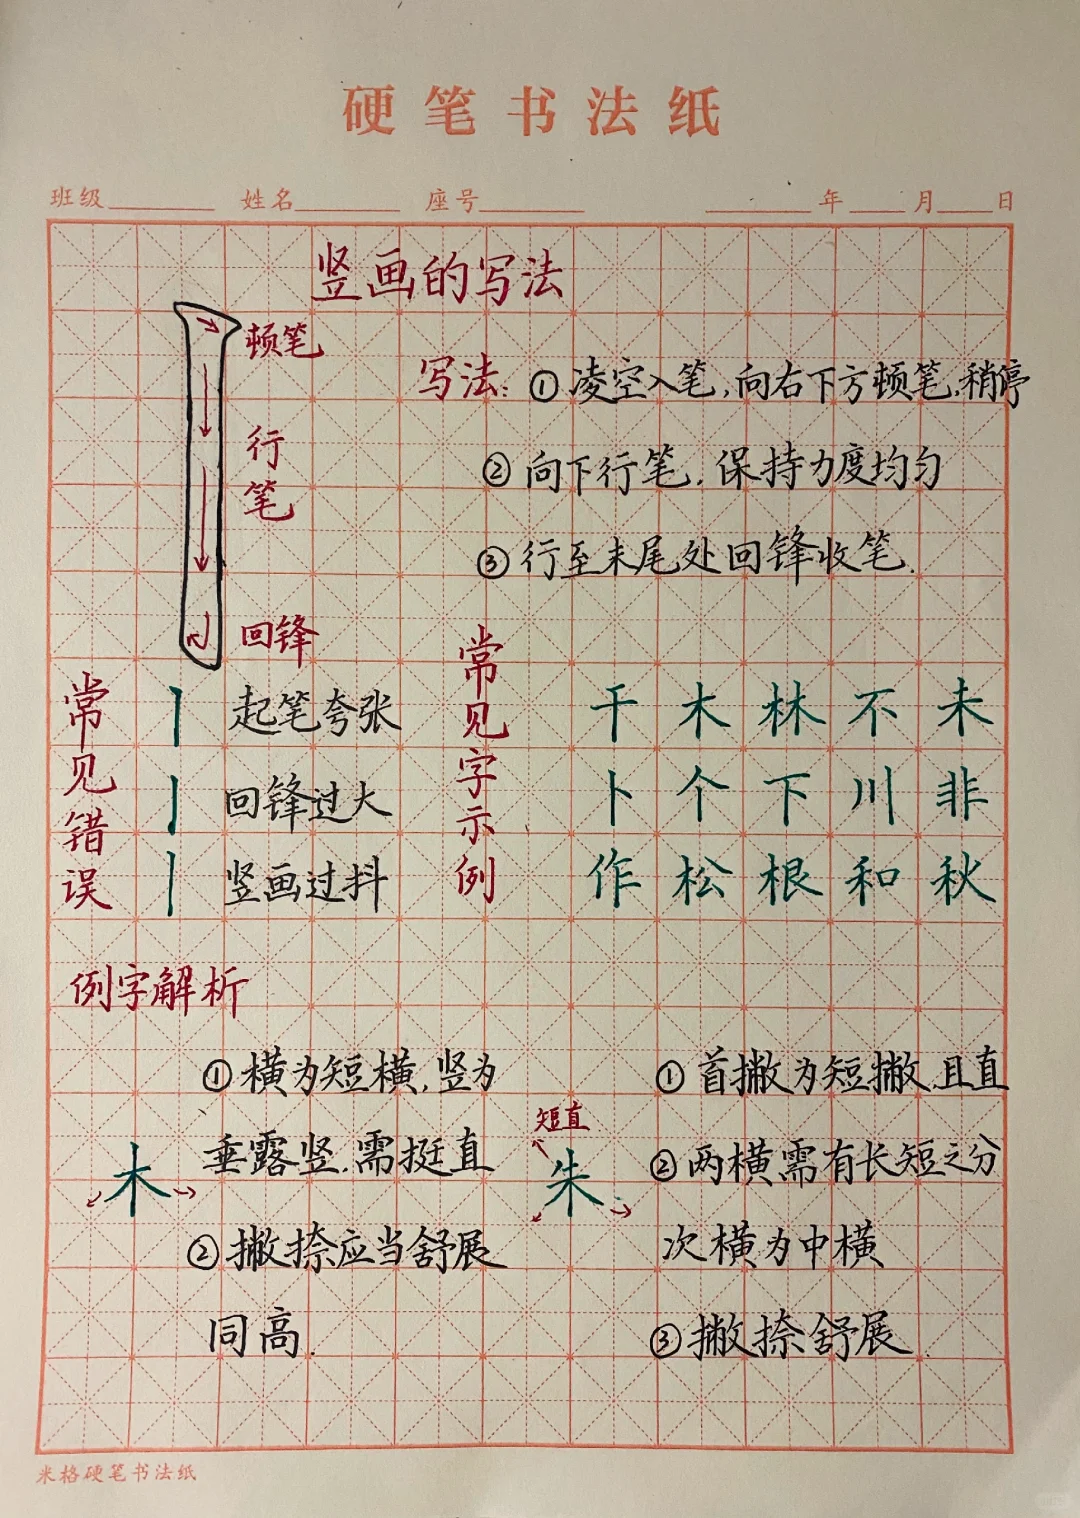 硬笔书法纸
班级 姓名 座号 年 月 日
竖画的写法
顿笔
行笔
回锋
写法：①凌空入笔,向右下方顿笔.稍停
②向下行笔.保持力度均匀
③行至末尾处回锋收笔.
常见错误
起笔夸张
回锋过大
竖画过抖
常见字示例
干木林不未
卜个下川非
作松根和秋
例字解析
木
①横为短横.竖为
垂露竖.需挺直
②撇捺应当舒展
同高.
短直
朱
①首撇为短撇.且直
②两横需有长短之分
次横为中横
③撇捺舒展.
米格硬笔书法纸